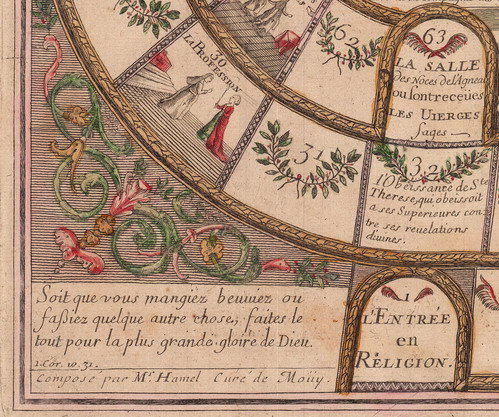 63
LA SALLE
Des Nôces de l'Agneau
ou sont receües
LES VIERGES
sages
62
30
LA PROFESSION
31
32
l'Obeissance de Ste
Therese, qui obeissoit
a ses Superieures con
tre ses reuelations
diuines.
Soit que vous mangiez beuuiez ou
faßiez quelque autre chose, faites le
tout pour la plus grande gloire de Dieu.
1. Cor. 10. 31.
Composé par Mr. Hamel Curé de Moüy.
1
L'ENTRÉE
en
RÉLIGION.